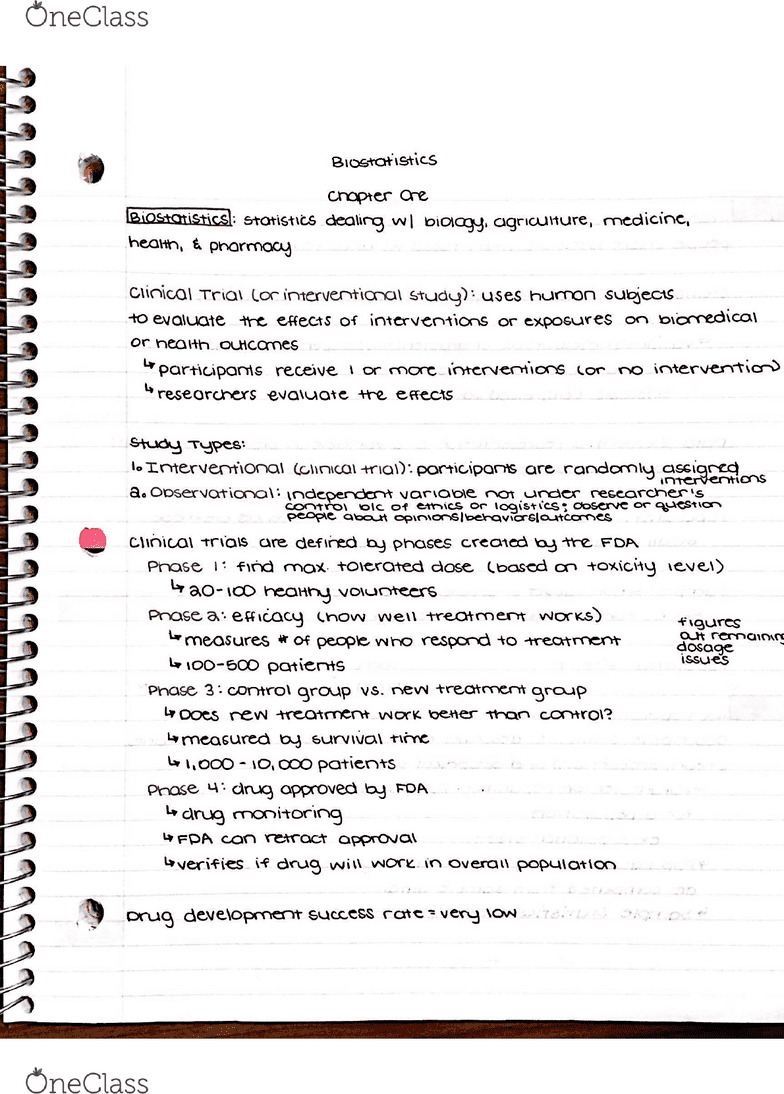 OneClass
Biostatistics
Chapter One
Biostatistics: statistics dealing w/ biology, agriculture, medicine,
health, & pharmacy
Clinical Trial (or interventional study): uses human subjects
to evaluate the effects of interventions or exposures on biomedical
or health outcomes
↳ participants receive 1 or more interventions (or no intervention)
↳ researchers evaluate the effects
Study Types:
1. Interventional (clinical trial): participants are randomly assigned
interventions
2. Observational: independent variable not under researcher's
control b/c of ethics or logistics; observe or question
people about opinions/behaviors/outcomes
Clinical trials are defined by phases created by the FDA
Phase 1: find max. tolerated dose (based on toxicity level)
↳ 20-100 healthy volunteers
Phase 2: efficacy (how well treatment works)
↳ measures # of people who respond to treatment
↳ 100-500 patients
figures
out remaining
dosage
issues
Phase 3: control group vs. new treatment group
↳ Does new treatment work better than control?
↳ measured by survival time
↳ 1,000-10,000 patients
Phase 4: drug approved by FDA
↳ drug monitoring
↳ FDA can retract approval
↳ verifies if drug will work in overall population
Drug development success rate = very low
OneClass